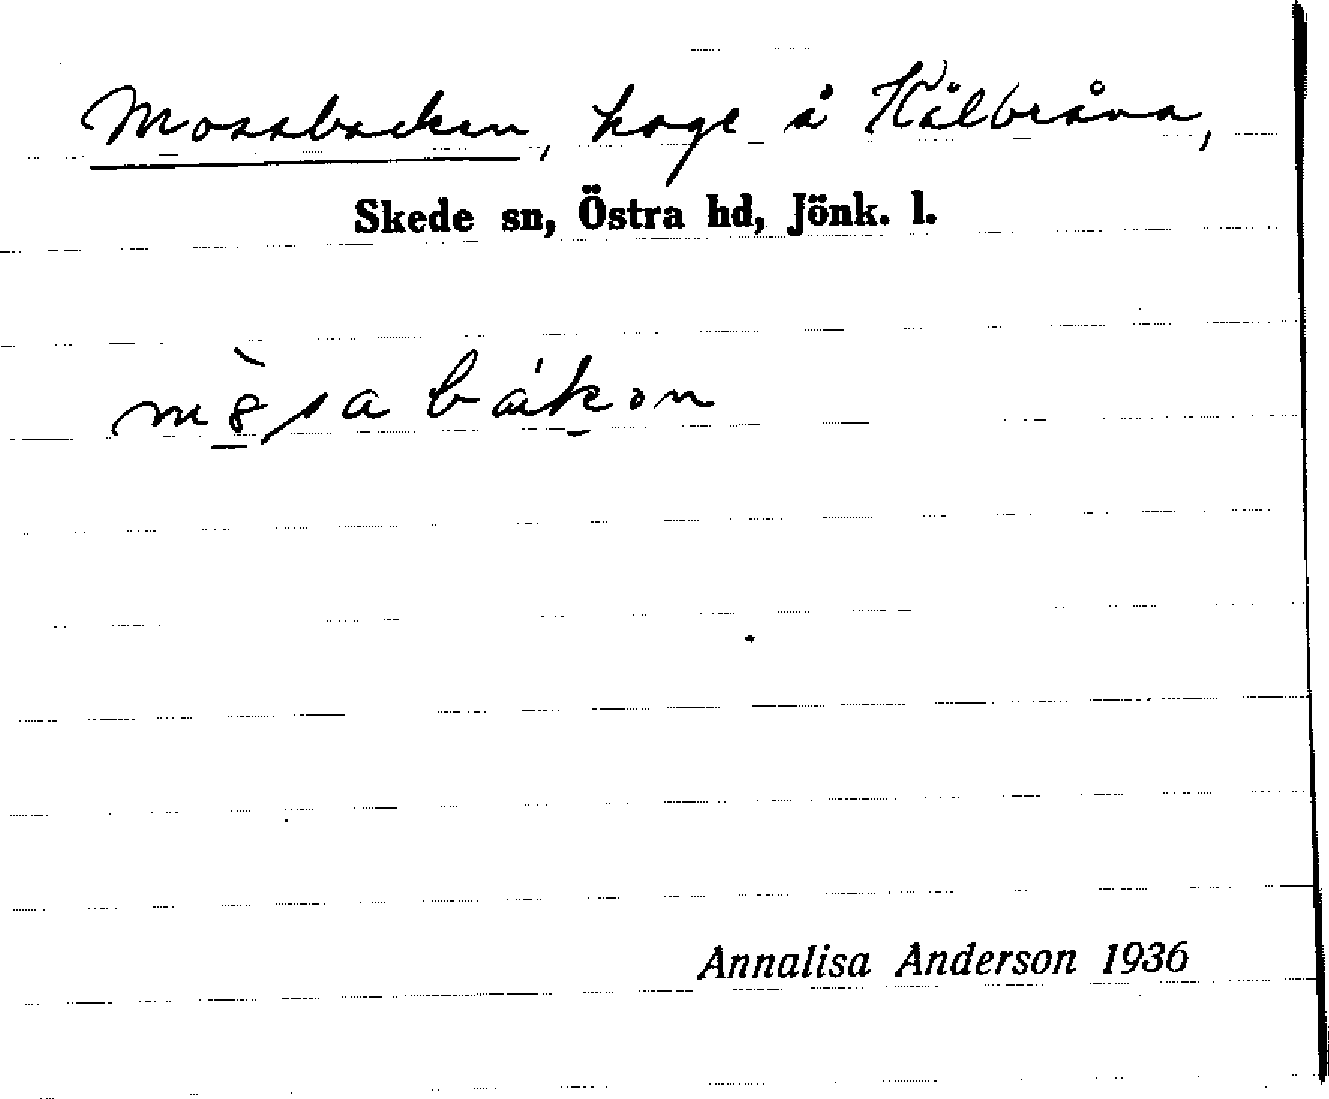 Mossabacken, hage å Kälbråna,
Skede sn, Östra hd, Jönk. l.
Annalisa Anderson 1936